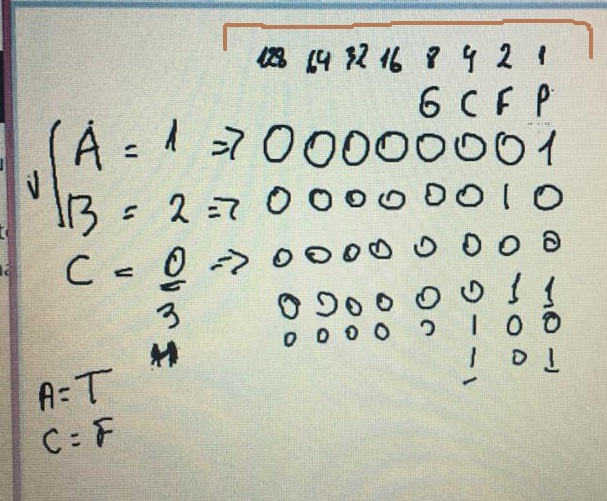 128 64 32 16 8 4 2 1
G C F P
A = 1 => 0 0 0 0 0 0 0 1
B = 2 => 0 0 0 0 0 0 1 0
C = 0 => 0 0 0 0 0 0 0 0
3 0 0 0 0 0 0 1 1
0 0 0 0 0 1 0 0
1 0 1
A = T
C = F